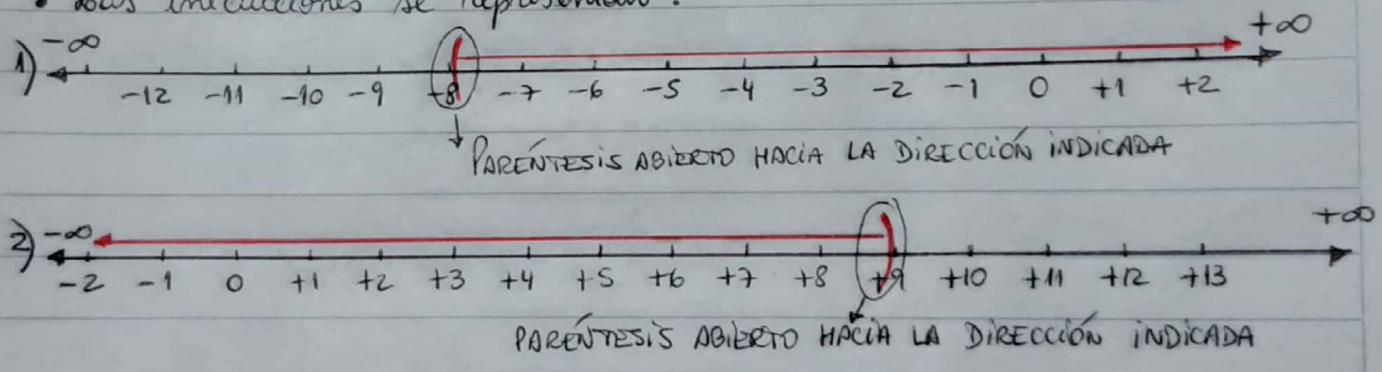 se
1) -∞ +∞
-12 -11 -10 -9 +8 -7 -6 -5 -4 -3 -2 -1 0 +1 +2
PARÉNTESIS ABIERTO HACIA LA DIRECCIÓN INDICADA
2) -∞ +∞
-2 -1 0 +1 +2 +3 +4 +5 +6 +7 +8 +9 +10 +11 +12 +13
PARÉNTESIS ABIERTO HACIA LA DIRECCIÓN INDICADA